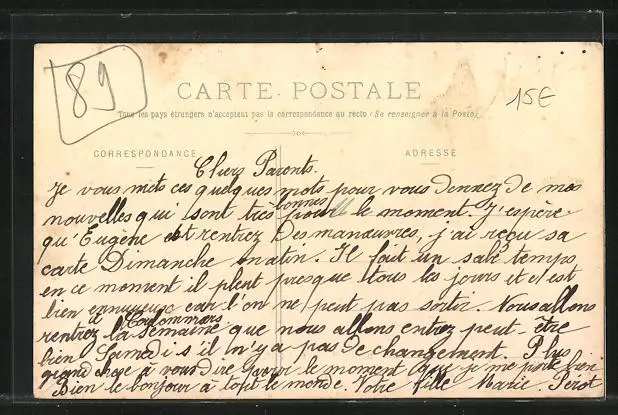 89
15E
CARTE POSTALE
Tous les pays étrangers n'acceptent pas la correspondance au recto (Se renseigner à la Poste)
CORRESPONDANCE
ADRESSE
Chers Parents.
Je vous mets ces quelques mots pour vous donnez de mes
nouvelles qui sont très bonnes pour le moment. J'espère
qu'Eugène est rentrez des manœuvres, j'ai reçu sa
carte Dimanche matin. Il fait un sale temps
en ce moment il pleut presque tous les jours et c'est
bien ennuyeux car l'on ne peut pas sortir. Nous allons
rentrez à Coulommiers la semaine que nous allons entrez peut-être
bien Samedi s'il n'y a pas de changement. Plus
grand chose à vous dire pour le moment que je me porte bien
Bien le bonjour à tout le monde. Votre fille Marie. Perot